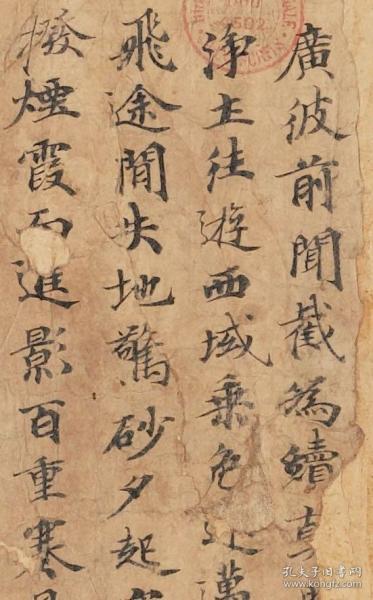 廣彼前聞截為續真
浄土往遊西域乗危
飛途閒失地驚砂夕起
撥煙霞而進影百重寒
孔夫子旧书网
www.kongfz.com